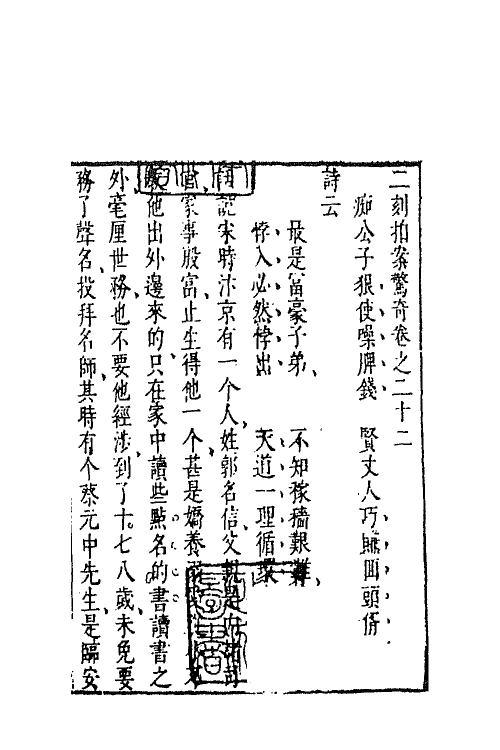 二刻拍案驚奇卷之二十二
痴公子狠使噪脾錢　賢丈人巧賺回頭俏
詩云
最是富豪子弟、不知稼穡艱難、
悖入必然悖出　天道一理循環
話說宋時汴京有一个人、姓郭名信、父親是内諸司
官家事殷富、止生得他一个、甚是嬌養
他出外邊來的、只在家中讀些點名的書、讀書之
外、毫厘世務也不要他經涉、到了十七八歲、未免要
務了聲名、投拜名師、其時有个蔡元中先生、是臨安